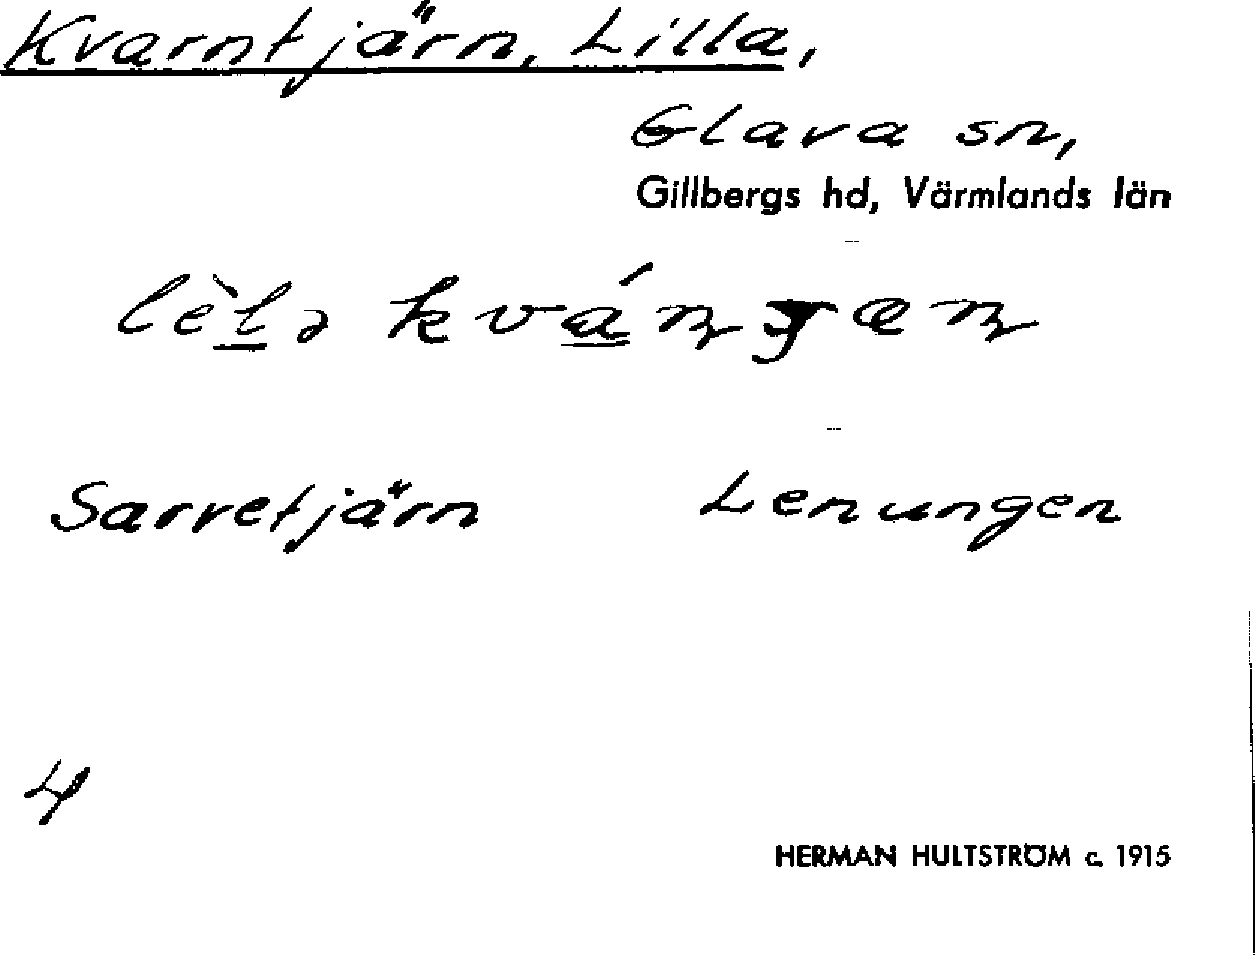 Kvarntjärn, Lilla,
Glava sn,
Gillbergs hd, Värmlands län
Sarvetjärn Lenungen
4
HERMAN HULTSTRÖM c. 1915